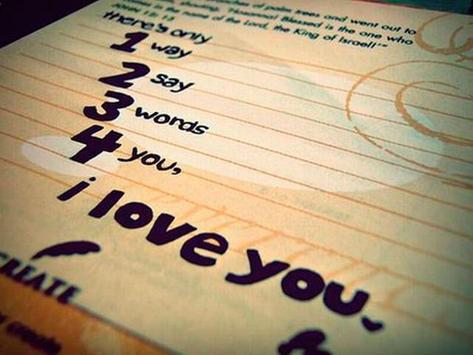 ches of palm trees and went out to
shouting, "Hosanna! Blessed is the one who
name of the Lord, the King of Israel!"
there's only
1 way
2 say
3 words
4 you,
i love you.
CREATE
create